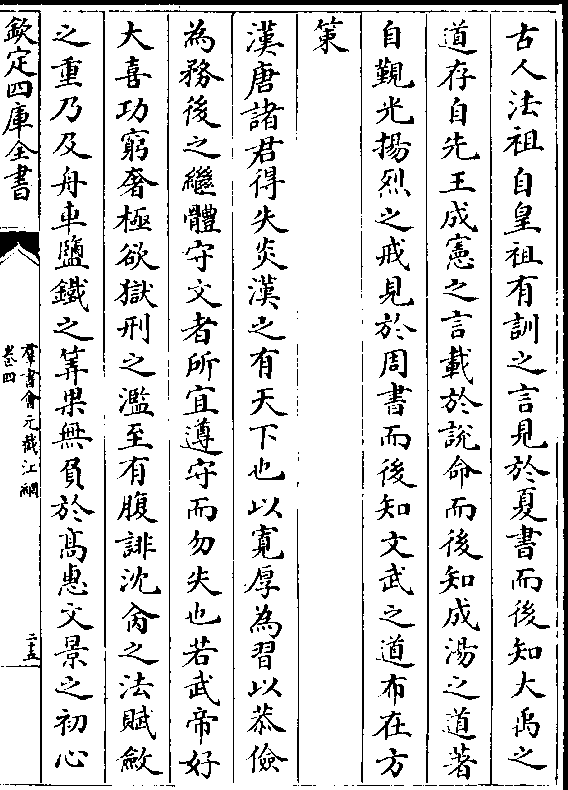 古人法祖自皇祖有訓之言見於夏書而後知大禹之
道存自先王成憲之言載於說命而後知成湯之道著
自覲光揚烈之戒見於周書而後知文武之道布在方
策
漢唐諸君得失炎漢之有天下也以寛厚為習以恭儉
為務後之繼體守文者所宜遵守而勿失也若武帝好
大喜功窮奢極欲獄刑之濫至有腹誹沈侖之法賦斂
之重乃及舟車鹽鐵之筭果無負於髙惠文景之初心
欽定四庫全書
羣書會元截江網
卷四
二十五